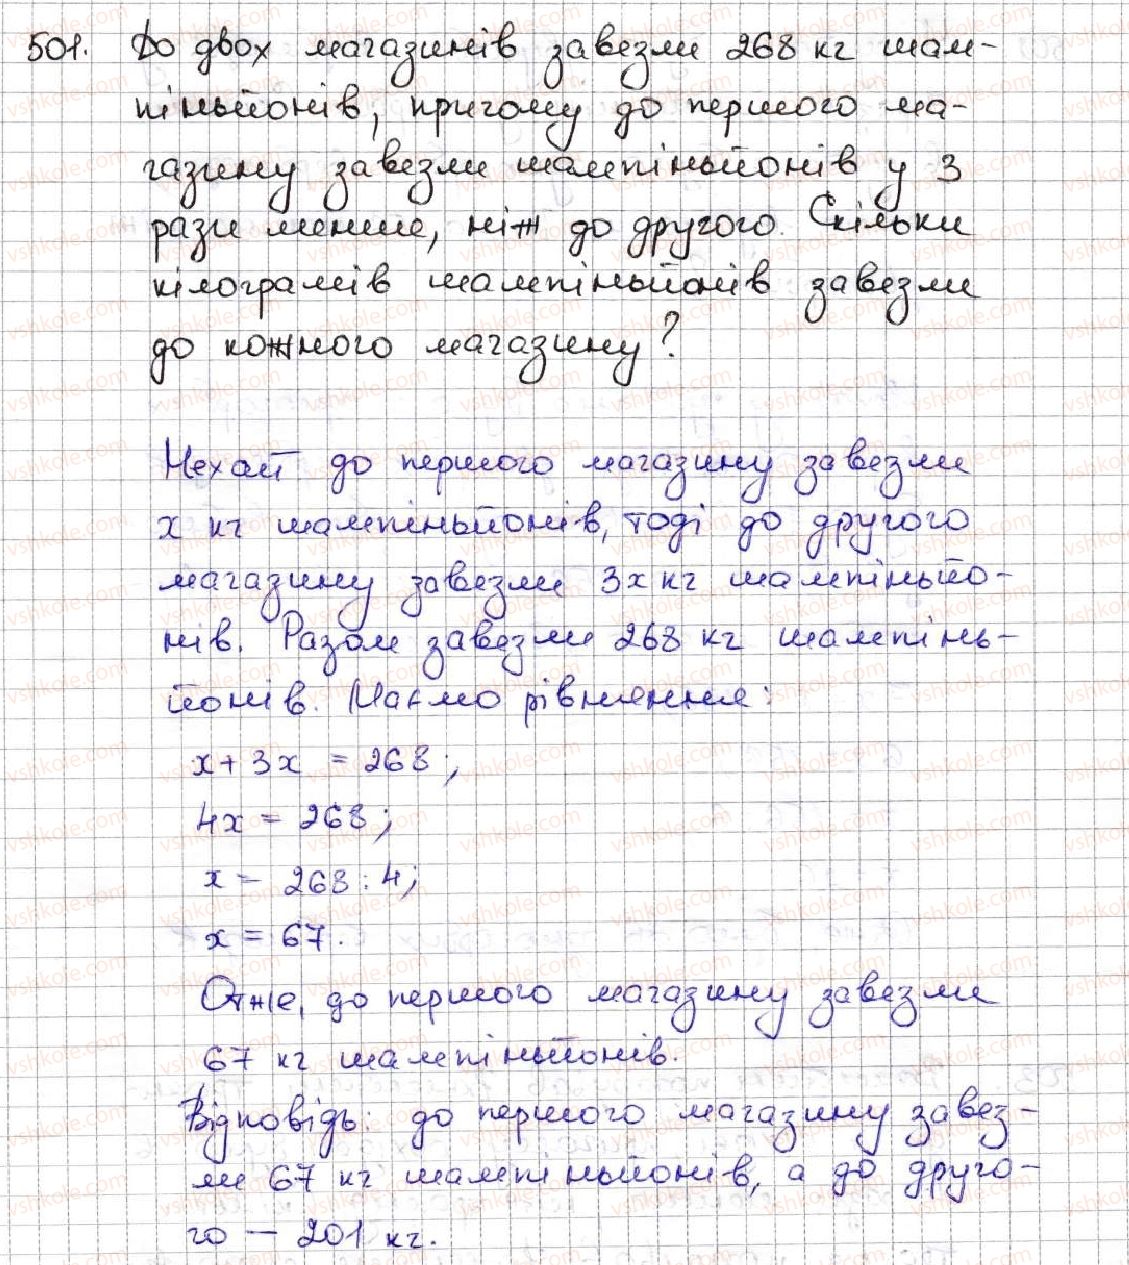 501. До двох магазинів завезли 268 кг шам-
піньйонів, причому до першого ма-
газину завезли шампіньйонів у 3
рази менше, ніж до другого. Скільки
кілограмів шампіньйонів завезли
до кожного магазину?
Нехай до першого магазину завезли
х кг шампіньйонів, тоді до другого
магазину завезли 3х кг шампіньйо-
нів. Разом завезли 268 кг шампінь-
йонів. Маємо рівняння:
х + 3х = 268;
4х = 268;
х = 268 : 4;
х = 67.
Отже, до першого магазину завезли
67 кг шампіньйонів.
Відповідь: до першого магазину завез-
ли 67 кг шампіньйонів, а до друго-
го — 201 кг.